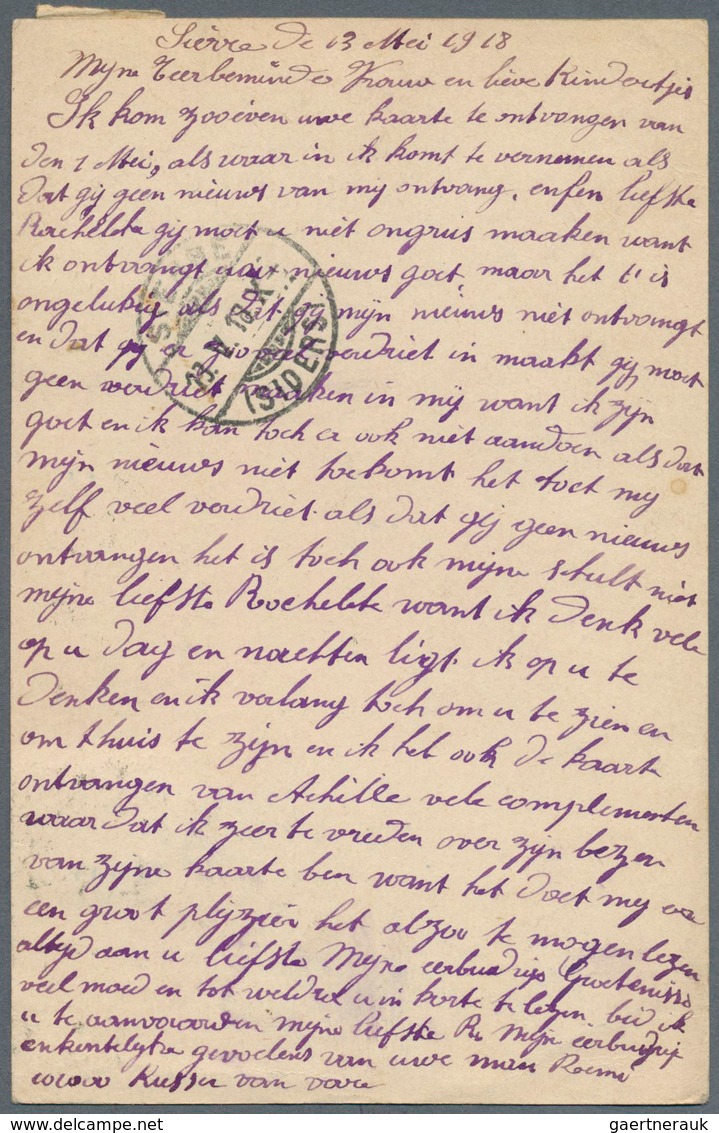 Sierre de 13 Mei 1918
Mijne Teerbeminde Vrouw en lieve Kindertjes
Ik kom zooeven uwe kaarte te ontvangen van
den 1 Mei, als waar in ik komt te vernemen als
dat gij geen nieuws van mij ontvang, enfen liefste
Rachelke gij moet u niet ongrus maaken want
ik ontvangt uw nieuws goet maar het t' is
ongelukig als dat gij mijn nieuws niet ontvangt
en dat gij er zoveel verdriet in maakt gij moet
geen verdriet maaken in mij want ik zijn
goet en ik kan toch er ook niet aandoen als dat
mijn nieuws niet toekomt het doet mij
zelf veel verdriet als dat gij geen nieuws
ontvangen het is toch ook mijne schult niet
mijne liefste Rachelke want ik denk vele
op u dag en nachten ligt ik op u te
denken en ik verlang toch om u te zien en
om thuis te zijn en ik het ook de kaarte
ontvangen van Achille vele complementen
waar dat ik zeer te vreden over zijn
van zijne kaarte ben want het doet mij
een groot plijzier het alzoo te mogen lezen
altijd aan u liefste Mijne eerbiedige Groetenisse
veel moed en tot weldra u in korte te lezen bid ik
u te aanvaarden mijne liefste Ra Mijn eerbiedige
enkentelijke gevoelens van uwe man Remi
10000 Kussen van vare
SIERRE
13. V. 18. X
(SIDERS)
gaertnerauk